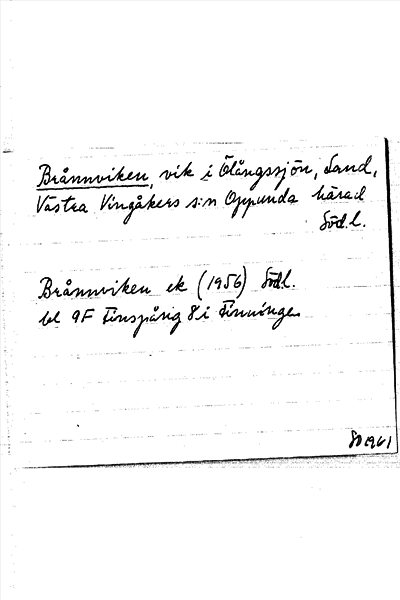 Brånnviken, vik i Ölångssjön, Sand,
Västra Vingåkers s:n Oppunda härad
Södl.
Brånnviken ek (1956) Södl.
bl 9F Finspång 8 i Finninge
SO 1961